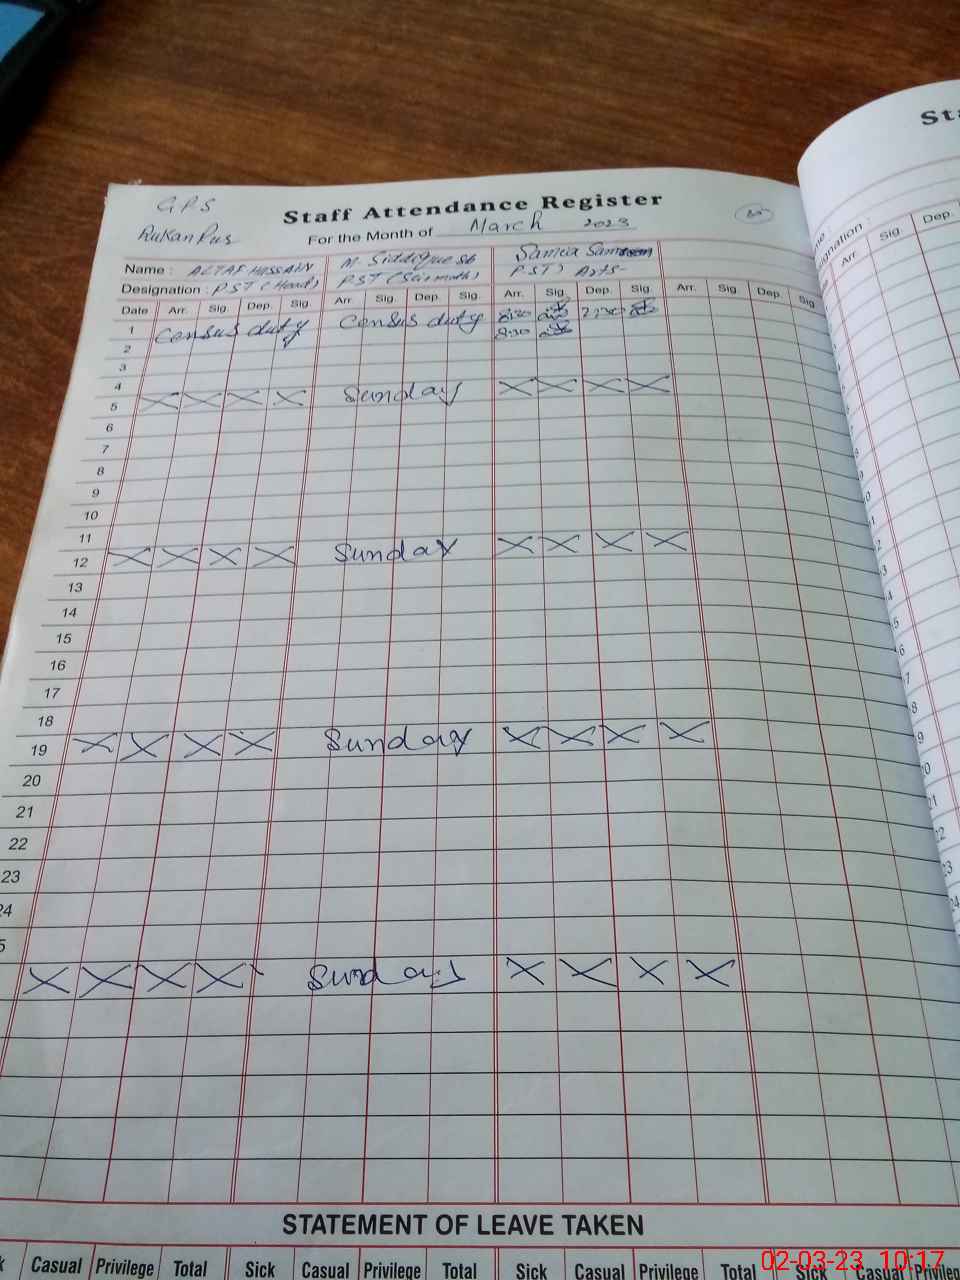 G.P.S
Staff Attendance Register
Rukanpur
For the Month of March 2023
Name : ALTAF HUSSAIN M. Siddique Sb Samia
Designation : PST (Head) PST (Sci-math) PST) Arts
Date Arr. Sig. Dep. Sig. Arr. Sig. Dep. Sig. Arr. Sig. Dep. Sig. Arr. Sig. Dep. Sig
1 Census duty Census duty 8:30 2:30
2 8:30
3
4
5 Sunday
6
7
8
9
10
11
12 Sunday
13
14
15
16
17
18
19 Sunday
20
21
22
23
24
5
Sunday
STATEMENT OF LEAVE TAKEN
k Casual Privilege Total Sick Casual Privilege Total Sick Casual Privilege Total Sick Casual Privileg
02-03-23 10:17
Sta
me :
signation :
Arr. Sig. Dep.